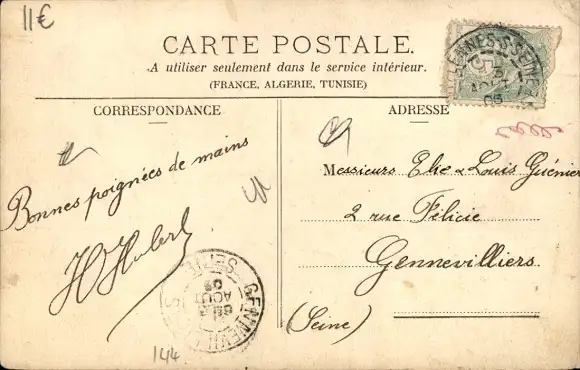 11€
CARTE POSTALE.
A utiliser seulement dans le service intérieur.
(FRANCE, ALGERIE, TUNISIE)
CORRESPONDANCE
ADRESSE
Bonnes poignées de mains
H Hubert
Messieurs Elie & Louis Guénier
2 rue Félicie
Gennevilliers
(Seine)
GENNEVILL SEINE
AOUT
144